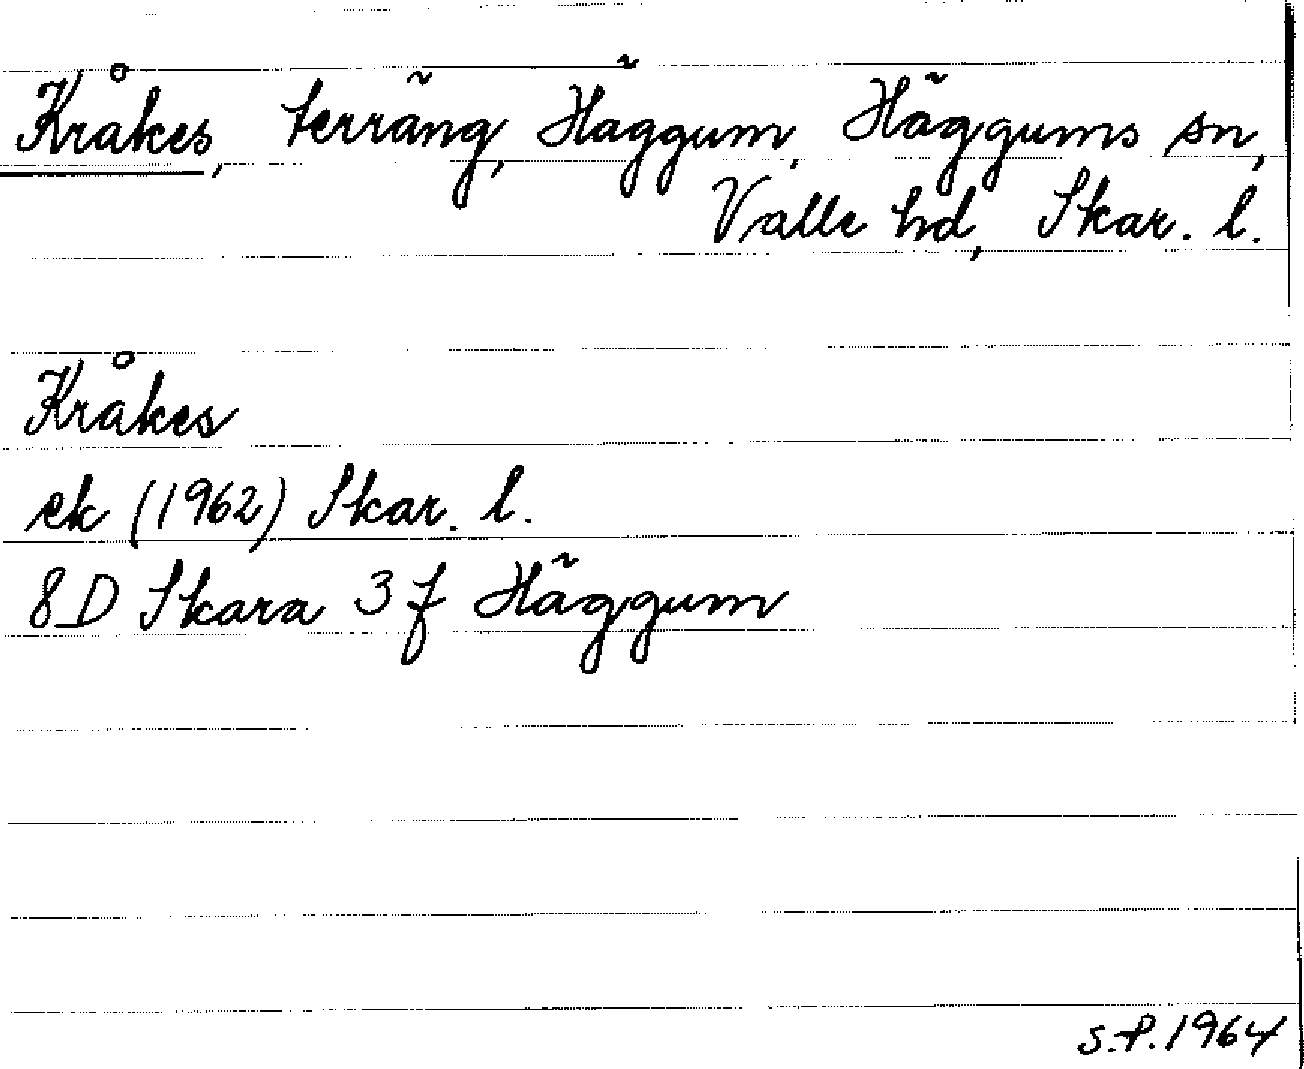 Kråkes, terräng, Häggum, Häggums sn,
Valle hd, Skar. l.
Kråkes
ek (1962) Skar. l.
8D Skara 3f Häggum
S.P. 1964